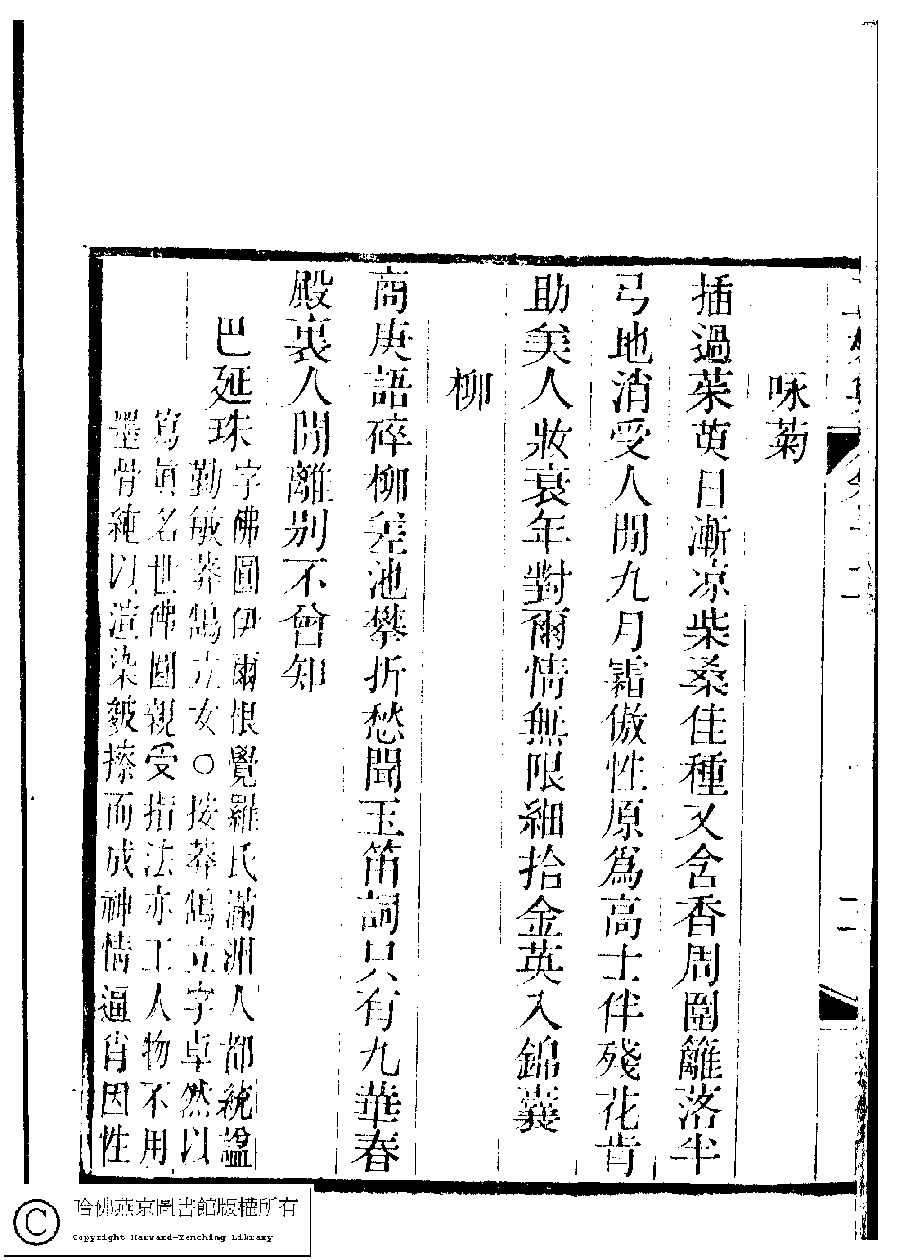 咏菊
插過茱萸日漸凉柴桑佳種又含香周圍籬落半
弓地消受人間九月霜傲性原爲高士伴殘花肯
助美人妝衰年對爾情無限細拾金英入錦囊
柳
商庚語碎柳差池攀折愁聞玉笛詞只有九華春
殿裏人間離别不曾知
巴延珠
字佛圓伊爾根覺羅氏滿洲人都統謚
勤敏莽鵠立女○按莽鵠立字卓然以
寫眞名世佛圓親受指法亦工人物不用
墨骨純以渲染皴擦而成神情逼肖因性
哈佛燕京圖書館版權所有
Copyright Harvard-Yenching Library